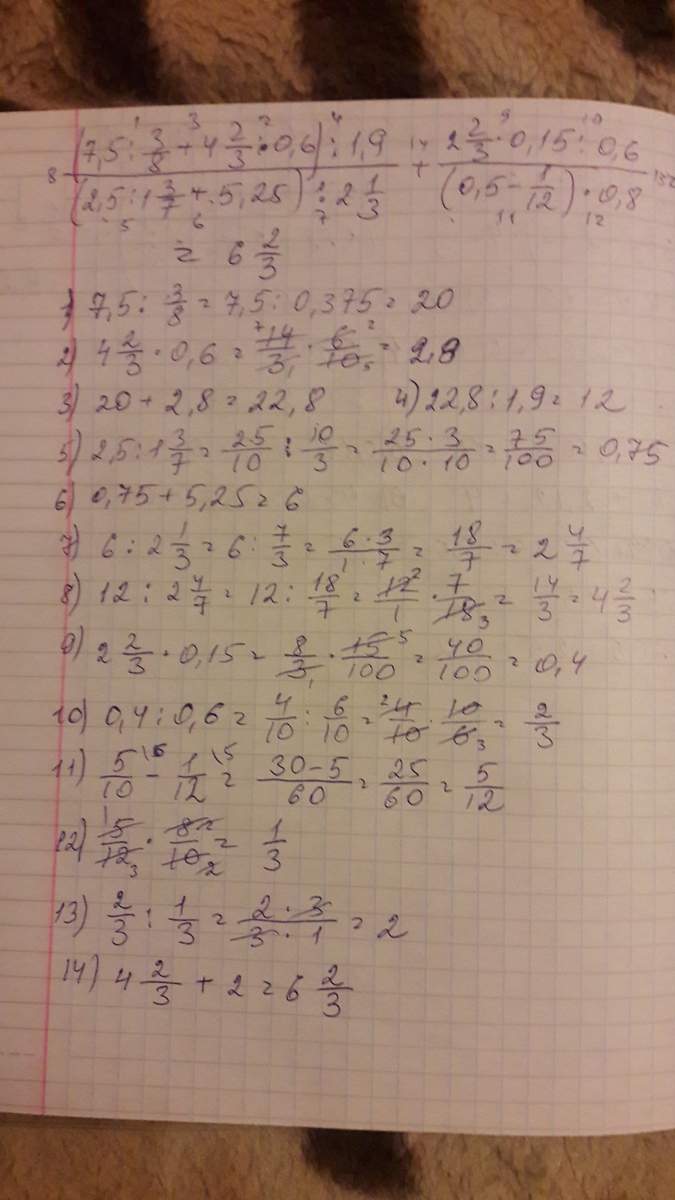 (7,5 : 3/8 + 4 2/3 · 0,6) : 1,9 / (2,5 : 1 3/7 + 5,25) : 2 1/3 + 2 2/3 · 0,15 : 0,6 / (0,5 - 1/12) · 0,8
= 6 2/3
1) 7,5 : 3/8 = 7,5 : 0,375 = 20
2) 4 2/3 · 0,6 = 14/3 · 6/10 = 2,8
3) 20 + 2,8 = 22,8 4) 22,8 : 1,9 = 12
5) 2,5 : 1 3/7 = 25/10 : 10/3 = 25 · 3/10 · 10 = 75/100 = 0,75
6) 0,75 + 5,25 = 6
7) 6 : 2 1/3 = 6 : 7/3 = 6 · 3/1 · 7 = 18/7 = 2 4/7
8) 12 : 2 4/7 = 12 : 18/7 = 12/1 · 7/18 = 14/3 = 4 2/3
9) 2 2/3 · 0,15 = 8/3 · 15/100 = 40/100 = 0,4
10) 0,4 : 0,6 = 4/10 : 6/10 = 4/10 · 10/6 = 2/3
11) 5/10 - 1/12 = 30-5/60 = 25/60 = 5/12
12) 5/12 · 8/10 = 1/3
13) 2/3 : 1/3 = 2 · 3/3 · 1 = 2
14) 4 2/3 + 2 = 6 2/3